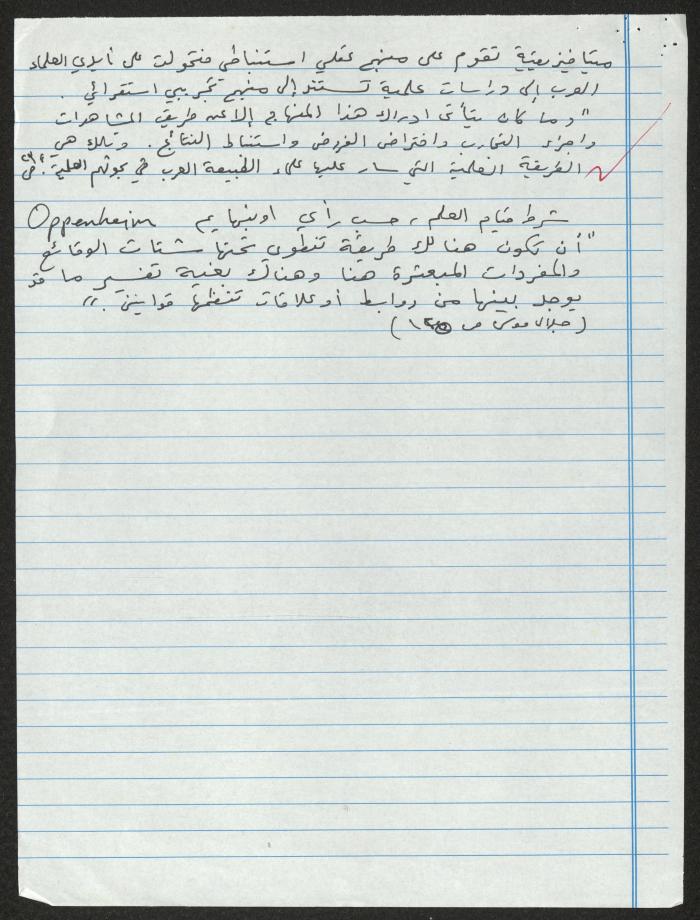 ميتافيزيقية تقوم على منهج عقلي استنباطي فتحولت على أيدي العلماء
العرب إلى دراسات علمية تستند إلى منهج تجريبي استقرائي .
"وما كان يتأتى ادراك هذا المنهاج إلا عن طريق المشاهدات
واجراء التجارب وافتراض الفروض واستنباط النتائج . وتلك هي
الطريقة العلمية التي سار عليها علماء الطبيعة العرب في بحوثهم العلمية" ص
شرط قيام العلم ، حسب رأي اوبنهايم Oppenheim
"أن تكون هنالك طريقة تنطوي تحتها شتات الوقائع
والمفردات المبعثرة هنا وهناك بغية تفسير ما قد
يوجد بينها من روابط أو علاقات تنظمها قوانين . "
(جلال موسى ص